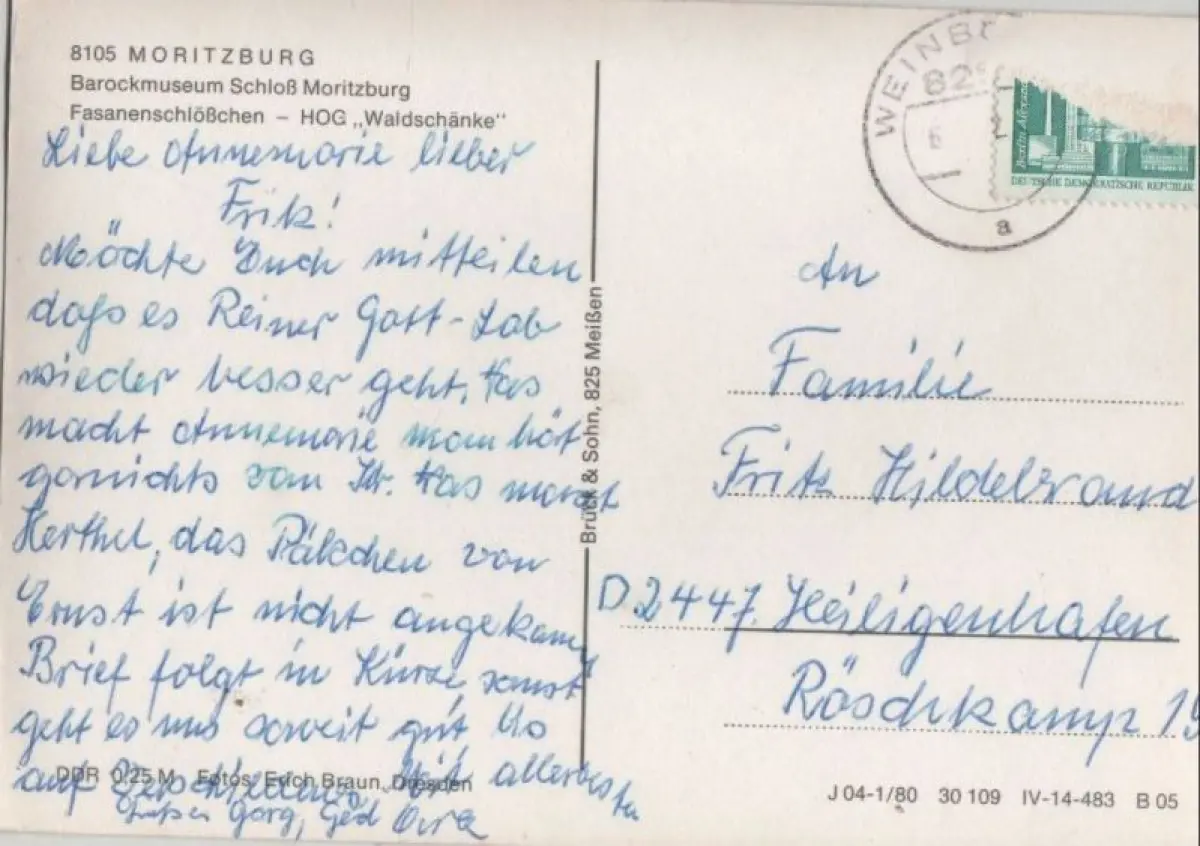 8105 MORITZBURG
Barockmuseum Schloß Moritzburg
Fasanenschlößchen – HOG „Waldschänke“
Liebe Annemarie lieber
Fritz!
Möchte Euch mitteilen
daß es Reiner Gott-Lob
wieder besser geht. Was
macht Annemarie man hört
garnichts von Ihr. Was macht
Herthel, das Päkchen von
Ernst ist nicht angekom
Brief folgt in Kürze, sonst
geht es uns soweit gut
auf Mit allerbesten
Grüßen
DDR 0,25 M Fotos: Erich Braun, Dresden
Brück & Sohn, 825 Meißen
WEINB
82
6
a
Berlin Alexand
DEUTSCHE DEMOKRATISCHE REPUBLIK
An
Familie
Fritz Hildebrand
D 2447 Heiligenhafen
Röschkamp 19
J 04-1/80 30 109 IV-14-483 B 05